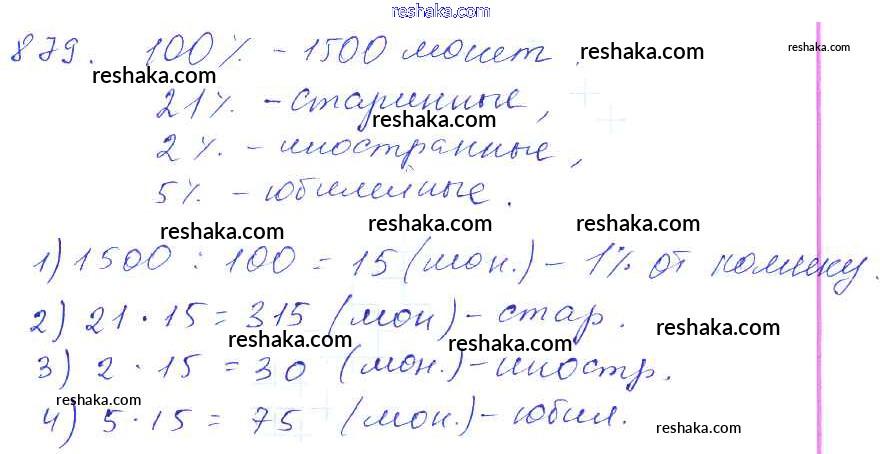 reshaka.com
879. 100% - 1500 монет.
reshaka.com reshaka.com reshaka.com
21% - старинные,
reshaka.com
2% - иностранные,
5% - юбилейные.
reshaka.com reshaka.com reshaka.com
1) 1500 : 100 = 15 (мон.) - 1% от
2) 21 · 15 = 315 (мон) - стар.
reshaka.com reshaka.com reshaka.com
3) 2 · 15 = 30 (мон.) - иностр.
reshaka.com
4) 5 · 15 = 75 (мон.) - юбил.
reshaka.com reshaka.com